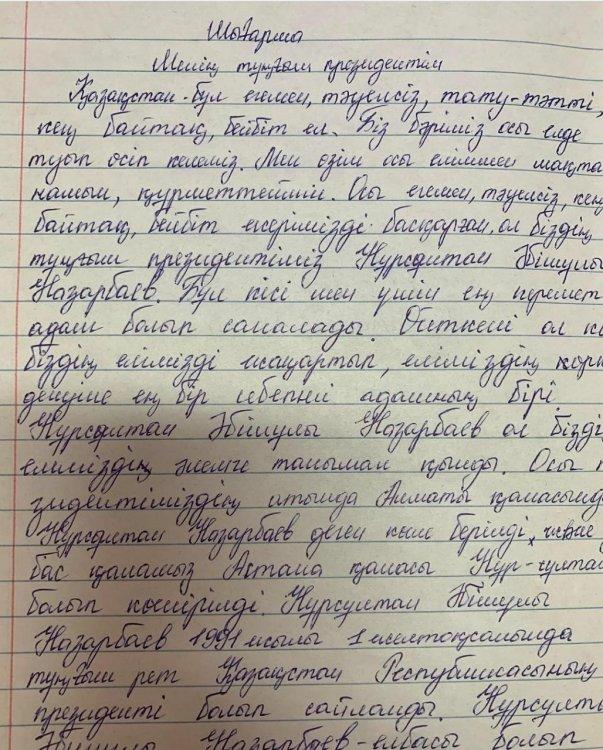 Шығарма
Менің тұңғыш президентім
Қазақстан - бұл егемен, тәуелсіз, тату-тәтті,
кең байтақ, бейбіт ел. Біз бәріміз осы елде
туып өсіп келеміз. Мен өзім осы еліммен мақта
намын, құрметтеймін. Осы егемен, тәуелсіз, кең
байтақ, бейбіт жерімізді басқарған, ол біздің
тұңғыш президентіміз Нұрсұлтан Әбішұлы
Назарбаев. Бұл кісі мен үшін ең керемет
адам болып саналады. Өйткені ол
біздің елімізді жаңартып, еліміздің көрк
деңуіне ең бір себепкей адамның бірі
Нұрсұлтан Әбішұлы Назарбаев ол бізді
еліміздің әлемге танымал қылды. Осы
зидентіміздің атында Алматы қаласынд
Нұрсұлтан Назарбаев деген көше берілді,
бас қаламыз Астана қаласы Нұр-сұлтан
болып көшірілді. Нұрсұлтан Әбішұлы
Назарбаев 1991 жылы 1 желтоқсанында
тұңғыш рет Қазақстан Республикасының
президенті болып сайланды. Нұрсұлт
Әбішұлы Назарбаев - елбасы болып